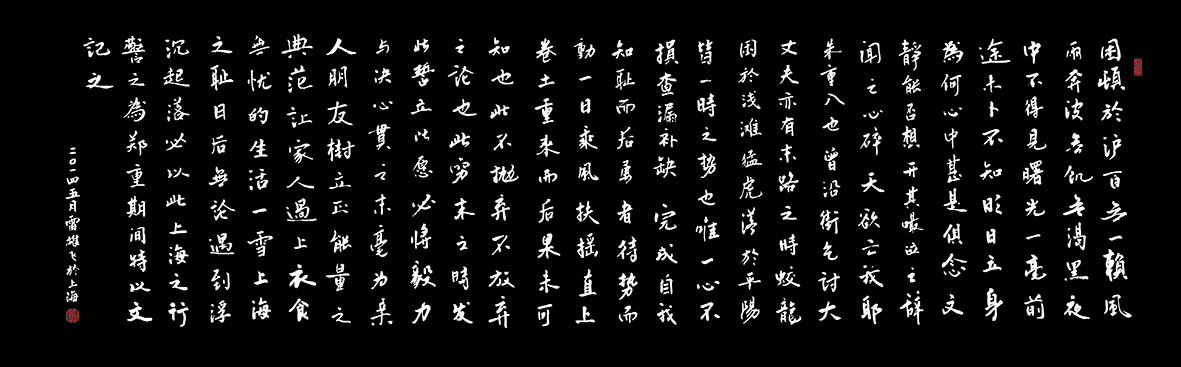 困頓於沪百无一賴風
雨奔波无飢无渴黑夜
中不得見曙光一毫前
途未卜不知明日立身
為何心中甚是俱念文
靜能否想开其嚎泣之辞
聞之心碎天欲亡我耶
朱重八也曾沿街乞讨大
丈夫亦有末路之時蛟龍
困於浅滩猛虎落於平陽
皆一時之势也唯一心不
損查漏补缺完成自我
知耻而后勇者待势而
動一日乘風扶摇直上
卷土重来而后果未可
知也此不抛弃不放弃
之論也此窮末之時发
此誓立此愿必将毅力
与决心贯之末毫为亲
人朋友树立正能量之
典范让家人過上衣食
無忧的生活一雪上海
之耻日后無論遇到浮
沉起落必以此上海之行
警之為郑重期间特以文
記之
二〇一四五月雷雄飞於上海